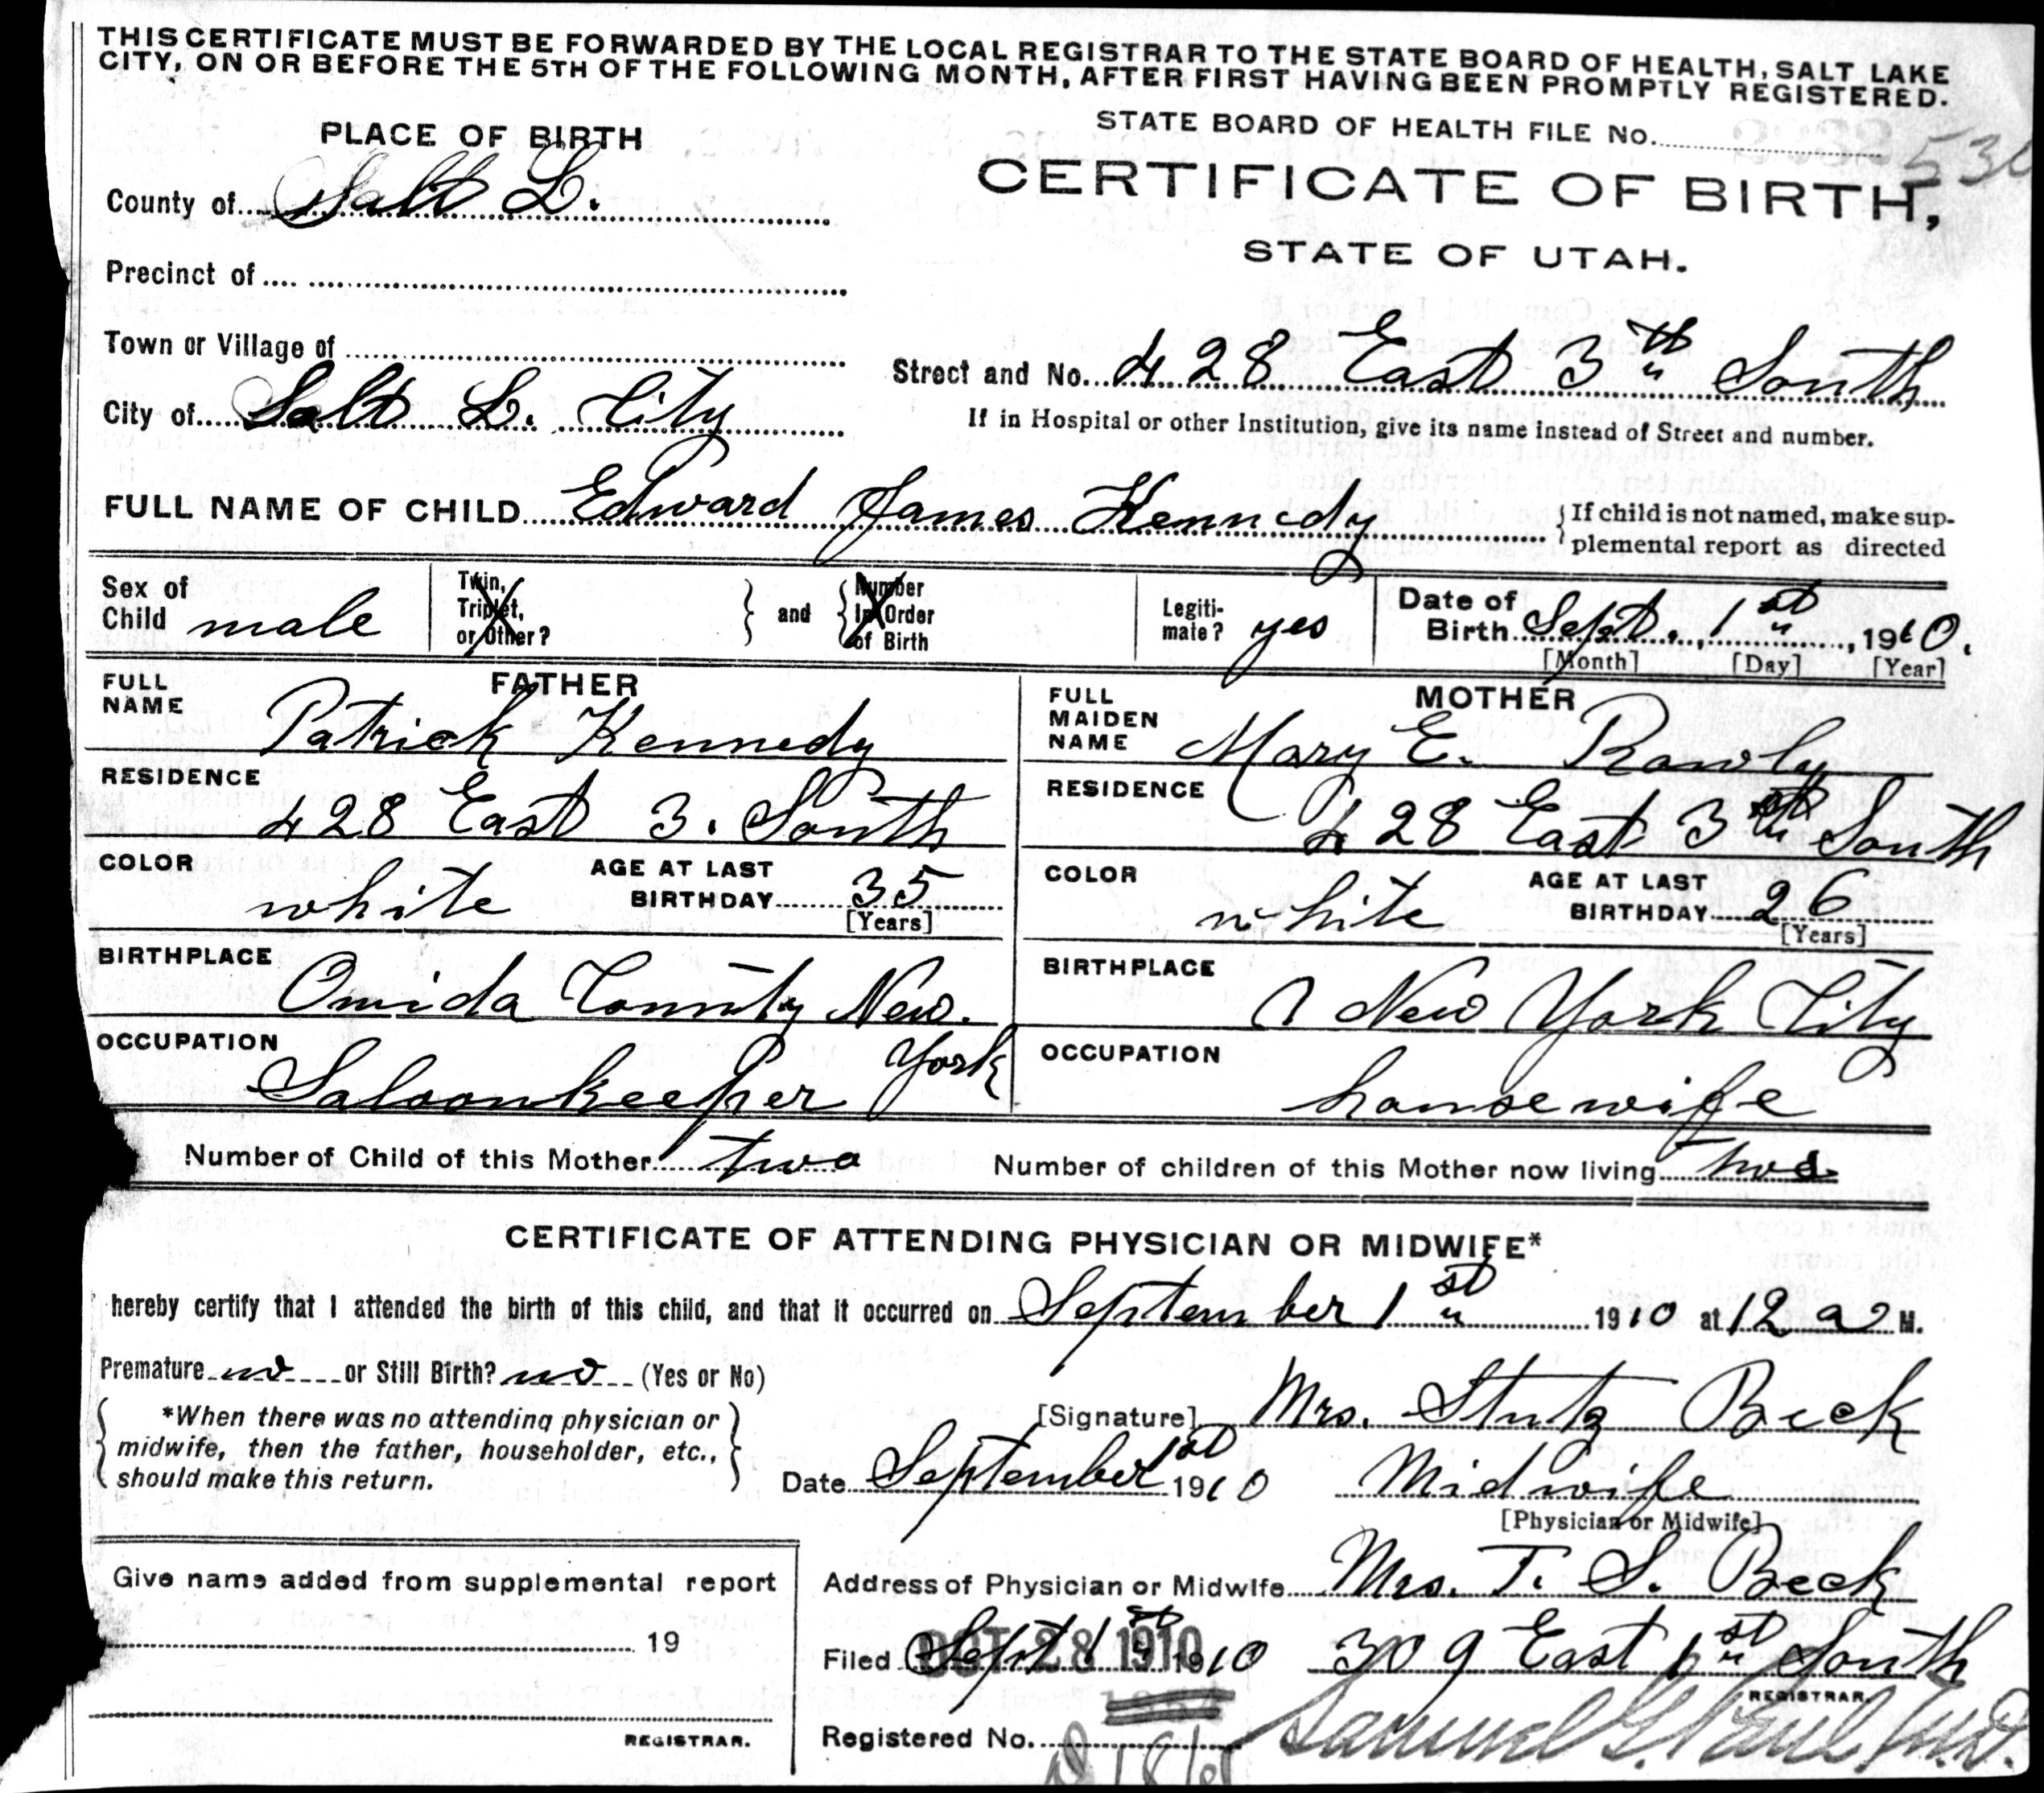 THIS CERTIFICATE MUST BE FORWARDED BY THE LOCAL REGISTRAR TO THE STATE BOARD OF HEALTH, SALT LAKE
CITY, ON OR BEFORE THE 5TH OF THE FOLLOWING MONTH, AFTER FIRST HAVING BEEN PROMPTLY REGISTERED.
PLACE OF BIRTH
STATE BOARD OF HEALTH FILE No.
County of Salt L.
CERTIFICATE OF BIRTH,
STATE OF UTAH.
Precinct of
Town or Village of
Street and No. 428 East 3th South
City of Salt L. City
If in Hospital or other Institution, give its name instead of Street and number.
FULL NAME OF CHILD Edward James Kennedy
If child is not named, make sup-
plemental report as directed
Sex of Child male
Twin, Triplet, or Other?
and
Number in Order of Birth
Legiti-mate? yes
Date of Birth Sept. 1st, 1910.
[Month] [Day] [Year]
FATHER
FULL NAME Patrick Kennedy
RESIDENCE
428 East 3. South
COLOR white
AGE AT LAST BIRTHDAY 35
[Years]
BIRTHPLACE
Onida County New York
OCCUPATION
Saloonkeeper
MOTHER
FULL MAIDEN NAME Mary E. Rawly
RESIDENCE
428 East 3th South
COLOR white
AGE AT LAST BIRTHDAY 26
[Years]
BIRTHPLACE
New York City
OCCUPATION
housewife
Number of Child of this Mother two
Number of children of this Mother now living two
CERTIFICATE OF ATTENDING PHYSICIAN OR MIDWIFE*
hereby certify that I attended the birth of this child, and that it occurred on September 1st 1910 at 12 a M.
Premature no or Still Birth? no (Yes or No)
*When there was no attending physician or
midwife, then the father, householder, etc.,
should make this return.
[Signature] Mrs. Stutz Beck
Date September 1st 1910
Midwife
[Physician or Midwife]
Give name added from supplemental report
19
REGISTRAR.
Address of Physician or Midwife Mrs. T. S. Beck
Filed Sept 1st 1910
OCT 28 1910
309 East 1st South
REGISTRAR.
Registered No.
Samuel G. Paul M.D.